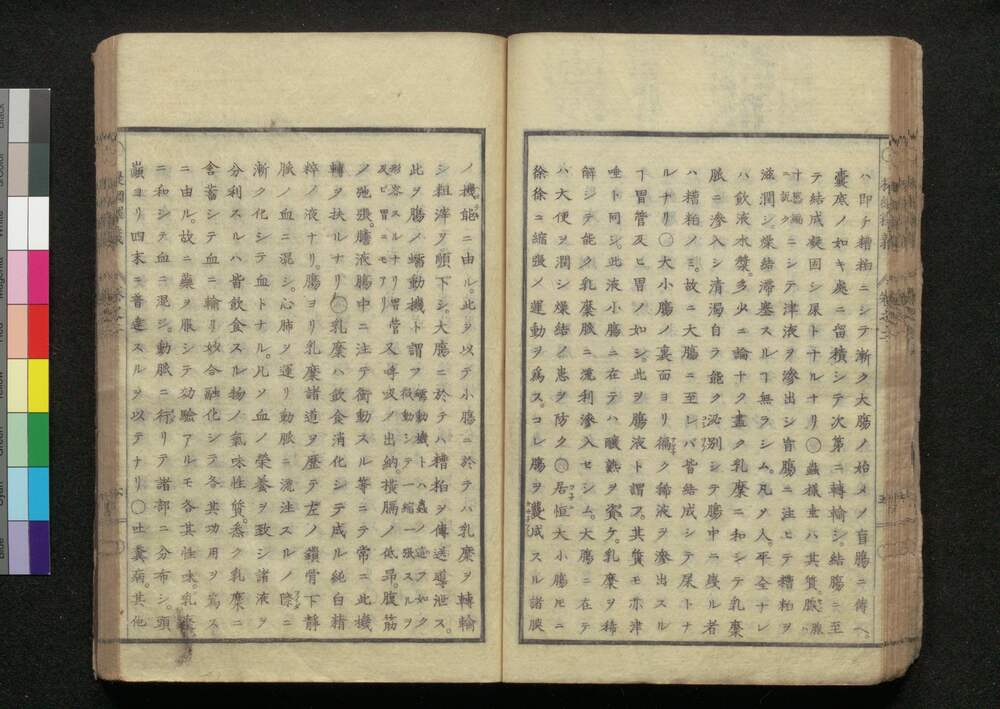 ハ即チ糟粕ニシテ漸ク大腸ノ始メノ盲腸ニ傳ヘ。
嚢底ノ如キ處ニ留積シテ次第ニ轉輸シ。結腸ニ至
テ結成凝固シ屎ト十ルナリ〇蟲樣垂ハ其質。脈
ニシテ津液ヲ滲出シ盲腸ニ注ヒテ糟粕ヲ
滋潤シ。燥結滯塞スルヿ無ラシム。凡ソ人。平全ナレ
バ飲液水漿。多少ニ論ナク盡ク乳糜ニ和シテ乳糜
脈ニ滲入シ清濁自ラ能ク泌別シテ腸中ニ

ハ糟粕ノミ。故ニ大腸ニ至レバ皆結成シテ屎トナ
ルナリ〇大小腸ノ裏面ヨリ徧ク稀液ヲ滲出スル
ヿ胃管及ヒ胃ノ如シ。此ヲ腸液ト謂フ。其質モ亦津
唾ト同シ。此液小腸ニ在テハ釀熟ヲ資ケ。乳糜ヲ稀
解シテ能ク乳糜脈ニ流利滲入セシム。大腸ニ在テ
ハ大便ヲ潤シ燥結ノ患ヲ防ク〇居恒大小腸𪜈ニ
徐徐ニ縮張ノ運動ヲ爲ス。コレ腸ヲ襲成スル諸膜
ノ機能ニ由ル。此ヲ以テ小腸ニ於テハ乳糜ヲ轉輸
シ粗滓ヲ順下シ。大腸ニ於テハ糟粕ヲ傳送導泄ス。
此ヲ腸ノ蠕動機ト謂フ 蠕動機トハ蟲ノ這フ如ク微動シテ一縮一張スルノ
形容スルナリ胃管及ビ胃ニモアリ 又呼吸ノ出納。横膈ノ低昻。腹筋
ノ弛張。膽液腸中ニ注テ衝動スル等ニテ常ニ此機
轉ヲ扶ルナリ〇乳糜ハ飲食消化シテ成ル純白精
粹ノ液ナリ。腸ヨリ乳糜諸道ヲ歴テ左ノ鎖骨下靜
脈ノ血ニ混シ。心肺ヲ運リ動脈ニ流注スルノ際ニ
漸ク化シテ血トナル。凡ソ血ノ榮養ヲ致シ諸液ヲ
分利スルハ皆飲食スル物ノ氣味性質。悉ク乳糜ニ
含蓄シテ血ニ輸リ妙合融化シテ各其功用ヲ爲ス
ニ由ル。故ニ藥ヲ服シテ効驗アルモ各其性味。乳糜
ニ和シテ血ニ混シ。動脈ニ行リテ諸部ニ分布シ。頭
巓ヨリ四末ニ普達スルヲ以テナリ〇吐糞病。其他